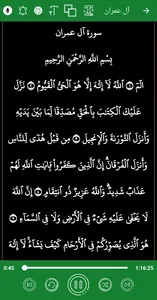 آل عمران
سورة آل عمران
بِسْمِ اللَّهِ الرَّحْمَٰنِ الرَّحِيمِ
الٓمٓ ۝ اللَّهُ لَا إِلَٰهَ إِلَّا هُوَ الْحَيُّ الْقَيُّومُ ۝ نَزَّلَ
عَلَيْكَ الْكِتَٰبَ بِالْحَقِّ مُصَدِّقًا لِّمَا بَيْنَ يَدَيْهِ
وَأَنزَلَ التَّوْرَىٰةَ وَالْإِنجِيلَ ۝ مِن قَبْلُ هُدًى لِّلنَّاسِ
وَأَنزَلَ الْفُرْقَانَ إِنَّ الَّذِينَ كَفَرُوا بِـَٔايَٰتِ اللَّهِ لَهُمْ
عَذَابٌ شَدِيدٌ وَاللَّهُ عَزِيزٌ ذُو انتِقَامٍ ۝ إِنَّ اللَّهَ
لَا يَخْفَىٰ عَلَيْهِ شَىْءٌ فِي الْأَرْضِ وَلَا فِي السَّمَاءِ ۝
هُوَ الَّذِي يُصَوِّرُكُمْ فِي الْأَرْحَامِ كَيْفَ يَشَاءُ لَا إِلَٰهَ
0:45 1:16:25